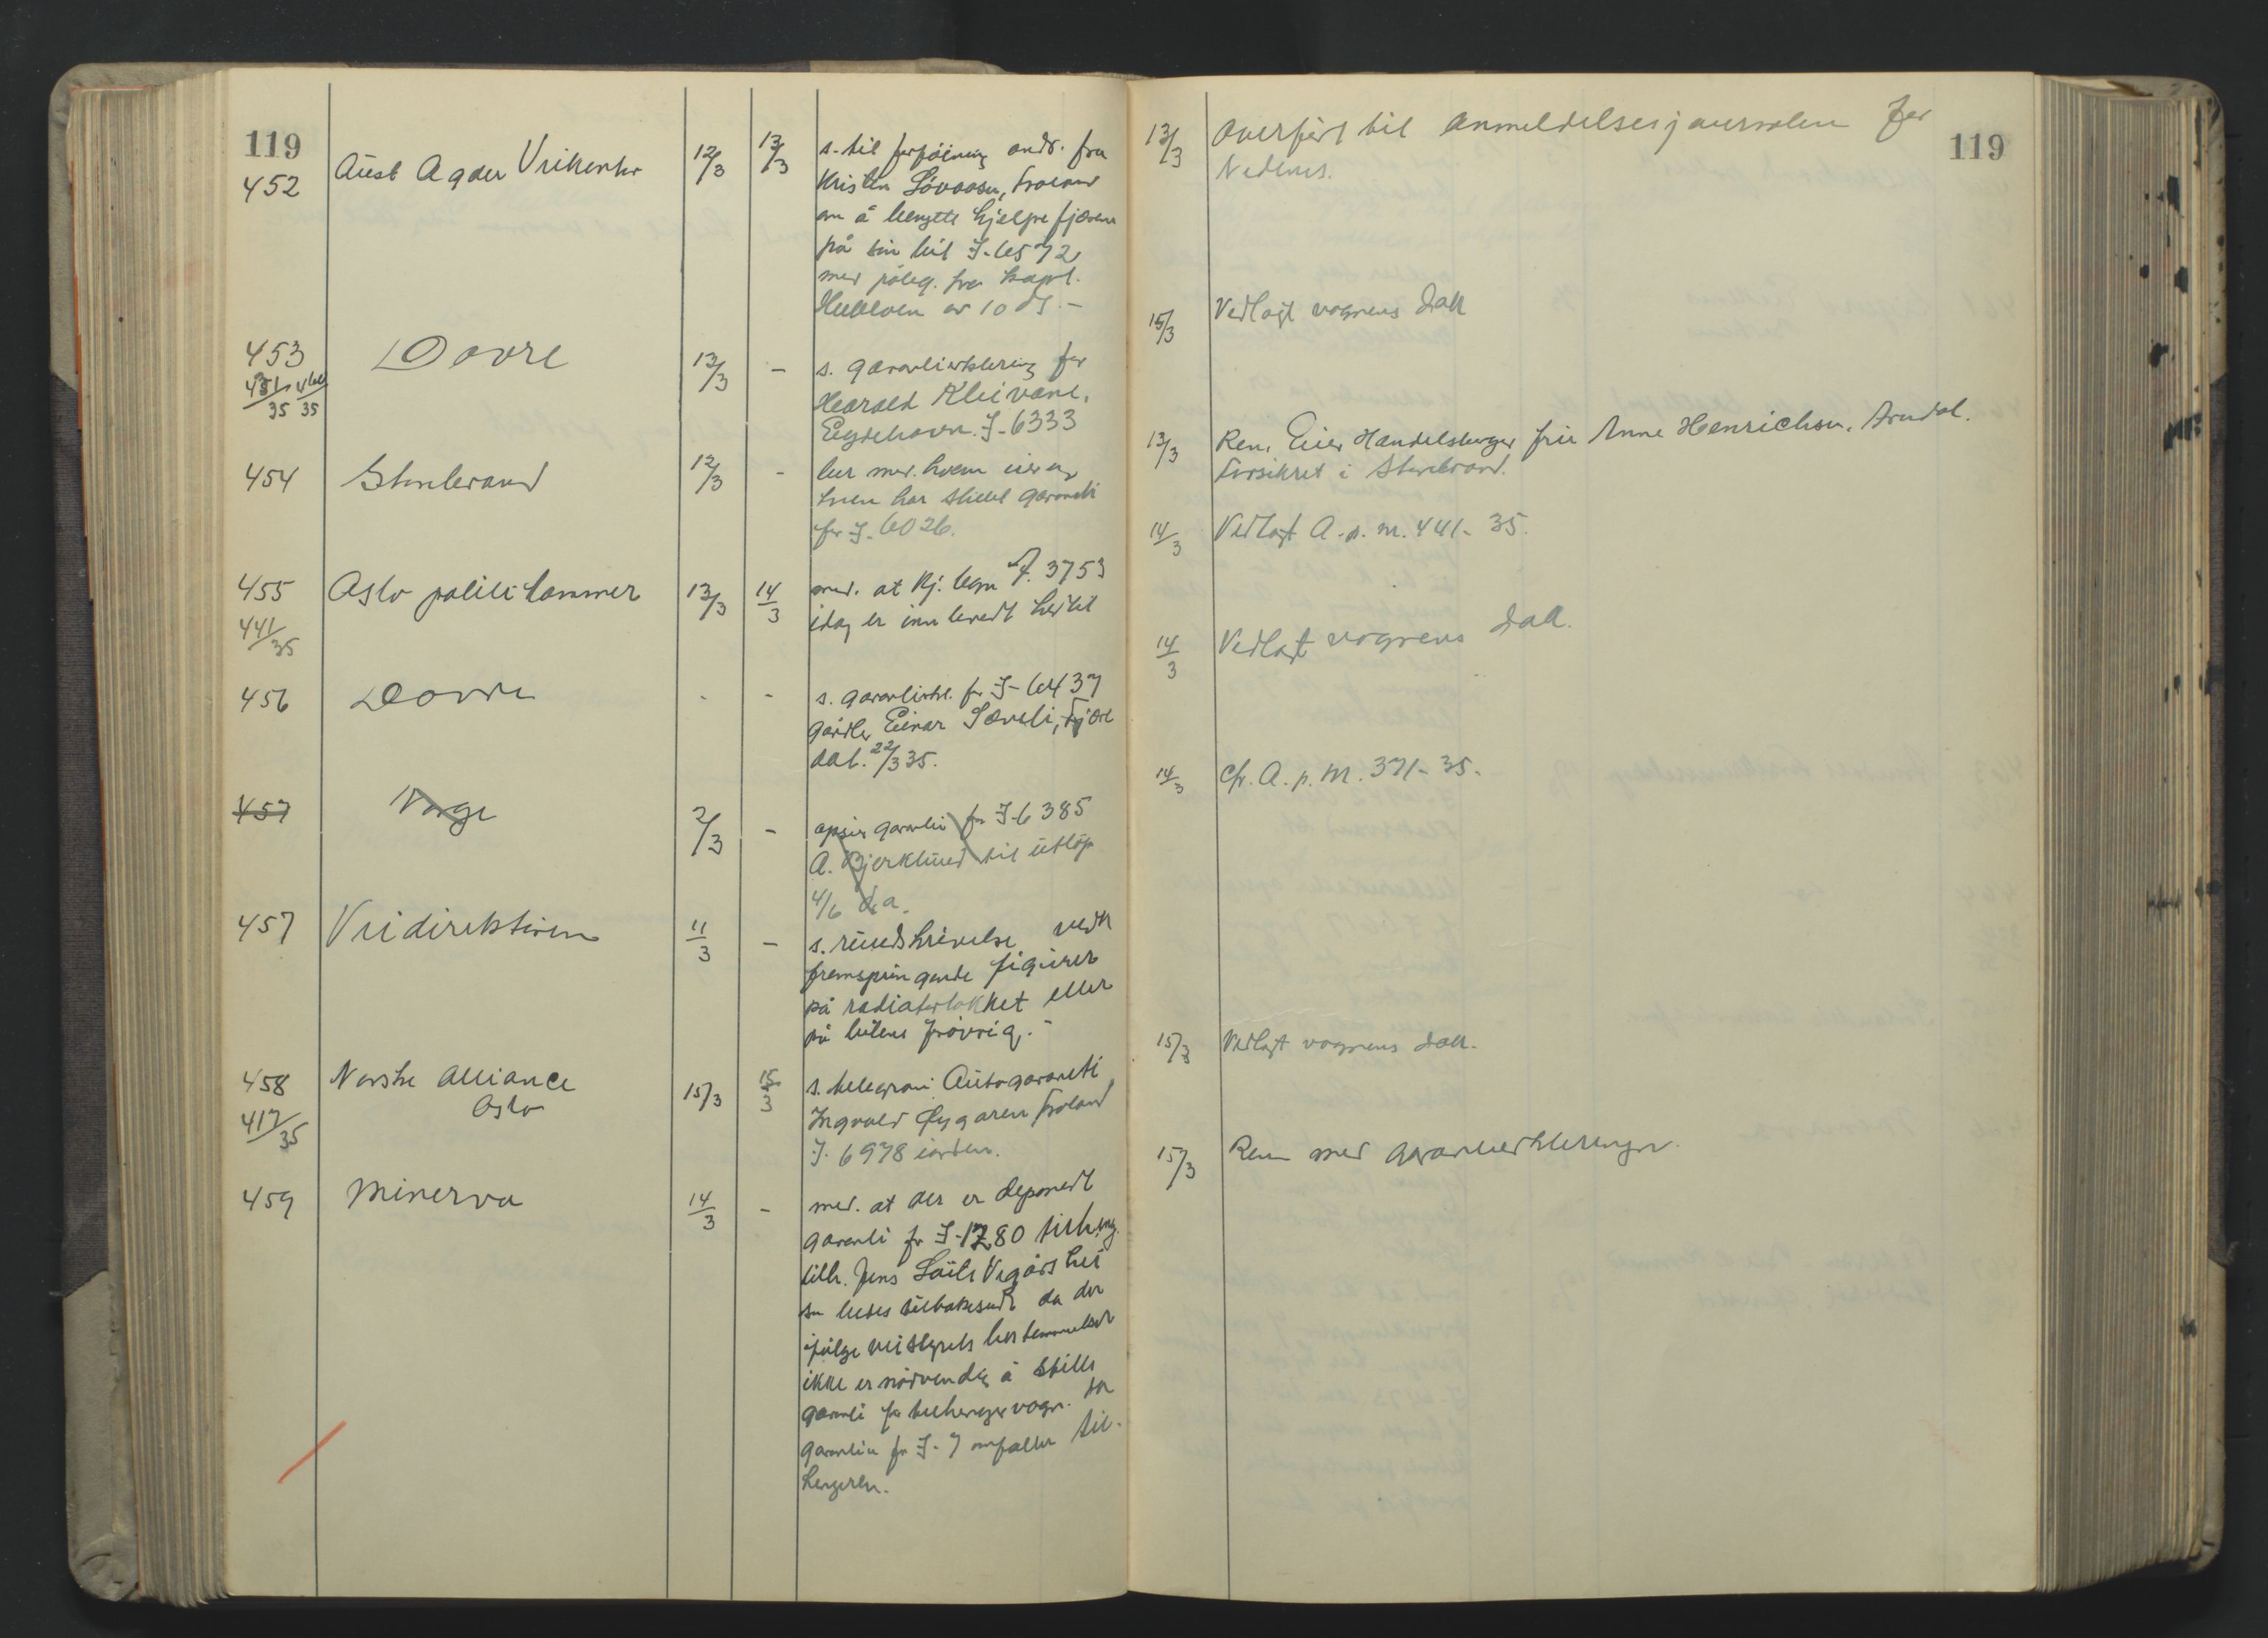 119
452 Aust Agder Veikontor 12/3 13/3 s. til forføining andr. fra
Kristen Løvaasen, Froland
om å benytte hjelpefjærer
på sin bil I-6572
med påteg. fra kapt.
av 10 ds. -
453 Dovre 13/3 - s. garantierklæring for
35 35
Harald Kleivane,
Eydehavn. I-6333
454 Storebrand 12/3 - ber med. hvem eier og
hvem har stillet garanti
for I-6026.
455 Oslo politikammer 13/3 14/3 med. at kj. tegn A. 3753
441/35
idag er innlevert hertil
456 Dovre - - s. garantierkl. for I-6437
Einar
dat. 22/3 35.
457 Norge 2/3 - opsier garanti for I-6385
A. Bjerklund til utløp
4/6 d.a.
457 Veidirektøren 11/3 - s. rundskrivelse vedk
fremspringende figurer
på radiatorlokket eller
på bilens forøvrig. -
458 Norske Alliance 15/3 15/3 s. telegram: Autogaranti
Oslo
417/35
Ingvald Øygaren Froland
I. 6978 iorden.
459 Minerva 14/3 - med. at der er deponert
garanti for I-1280 tilheng
tilh. Jens
bedes tilbakesendt da der
ifølge veistyrets bestemmelser
ikke er nødvendig å stille
garanti for tilhengervogn. da
garantien for I-7 omfatter til-
hengeren.
119
13/3 Overført til anmeldelsesjournalen for
Nedenes.
15/3 Vedlagt vognens dok
13/3 Ren. Eier Handelsborger fru Anne Henrichsen, Arendal.
Forsikret i Storebrand.
14/3 Vedlagt A.p.m. 441-35.
14/3 Vedlagt vognens dok.
14/3 Cfr. A.p.m. 371-35.
15/3 Vedlagt vognens dok.
15/3 Ren med garantierklæringen.